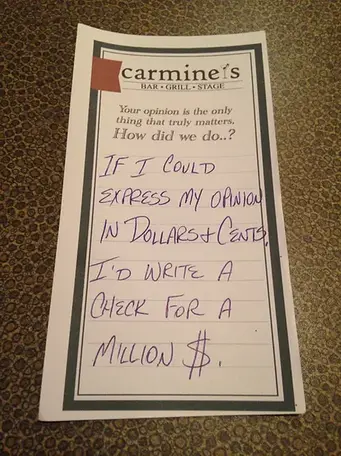 carmine's
BAR • GRILL • STAGE
Your opinion is the only
thing that truly matters.
How did we do..?
IF I COULD
EXPRESS MY OPINION
IN DOLLARS & CENTS,
I'D WRITE A
CHECK FOR A
MILLION $.